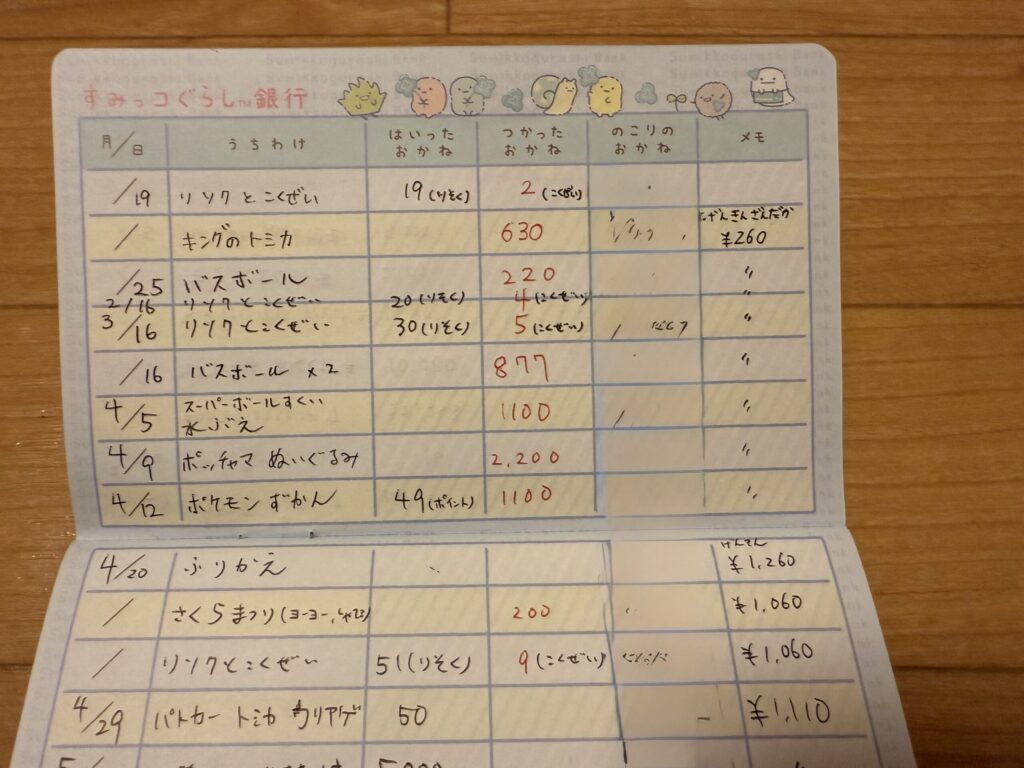 すみっコぐらし™銀行
月/日 うちわけ はいったおかね つかったおかね のこりのおかね メモ
/19 リソクとこくぜい 19(りそく) 2(こくぜい)
/ キングのトミカ 630 げんきんざんだか ¥260
/25 バスボール 220 〃
2/16 リソクとこくぜい 20(りそく) 4(こくぜい) 〃
3/16 リソクとこくぜい 30(りそく) 5(こくぜい) 〃
/16 バスボール×2 877 〃
4/5 スーパーボールすくい 水ぶえ 1100 〃
4/9 ポッチャマ ぬいぐるみ 2,200 〃
4/12 ポケモンずかん 49(ポイント) 1100 〃
4/20 ふりかえ ¥1,260
/ さくらまつり(ヨーヨー, 200 ¥1,060
/ リソクとこくぜい 51(りそく) 9(こくぜい) ¥1,060
4/29 パトカートミカ ウリアゲ 50 ¥1,110